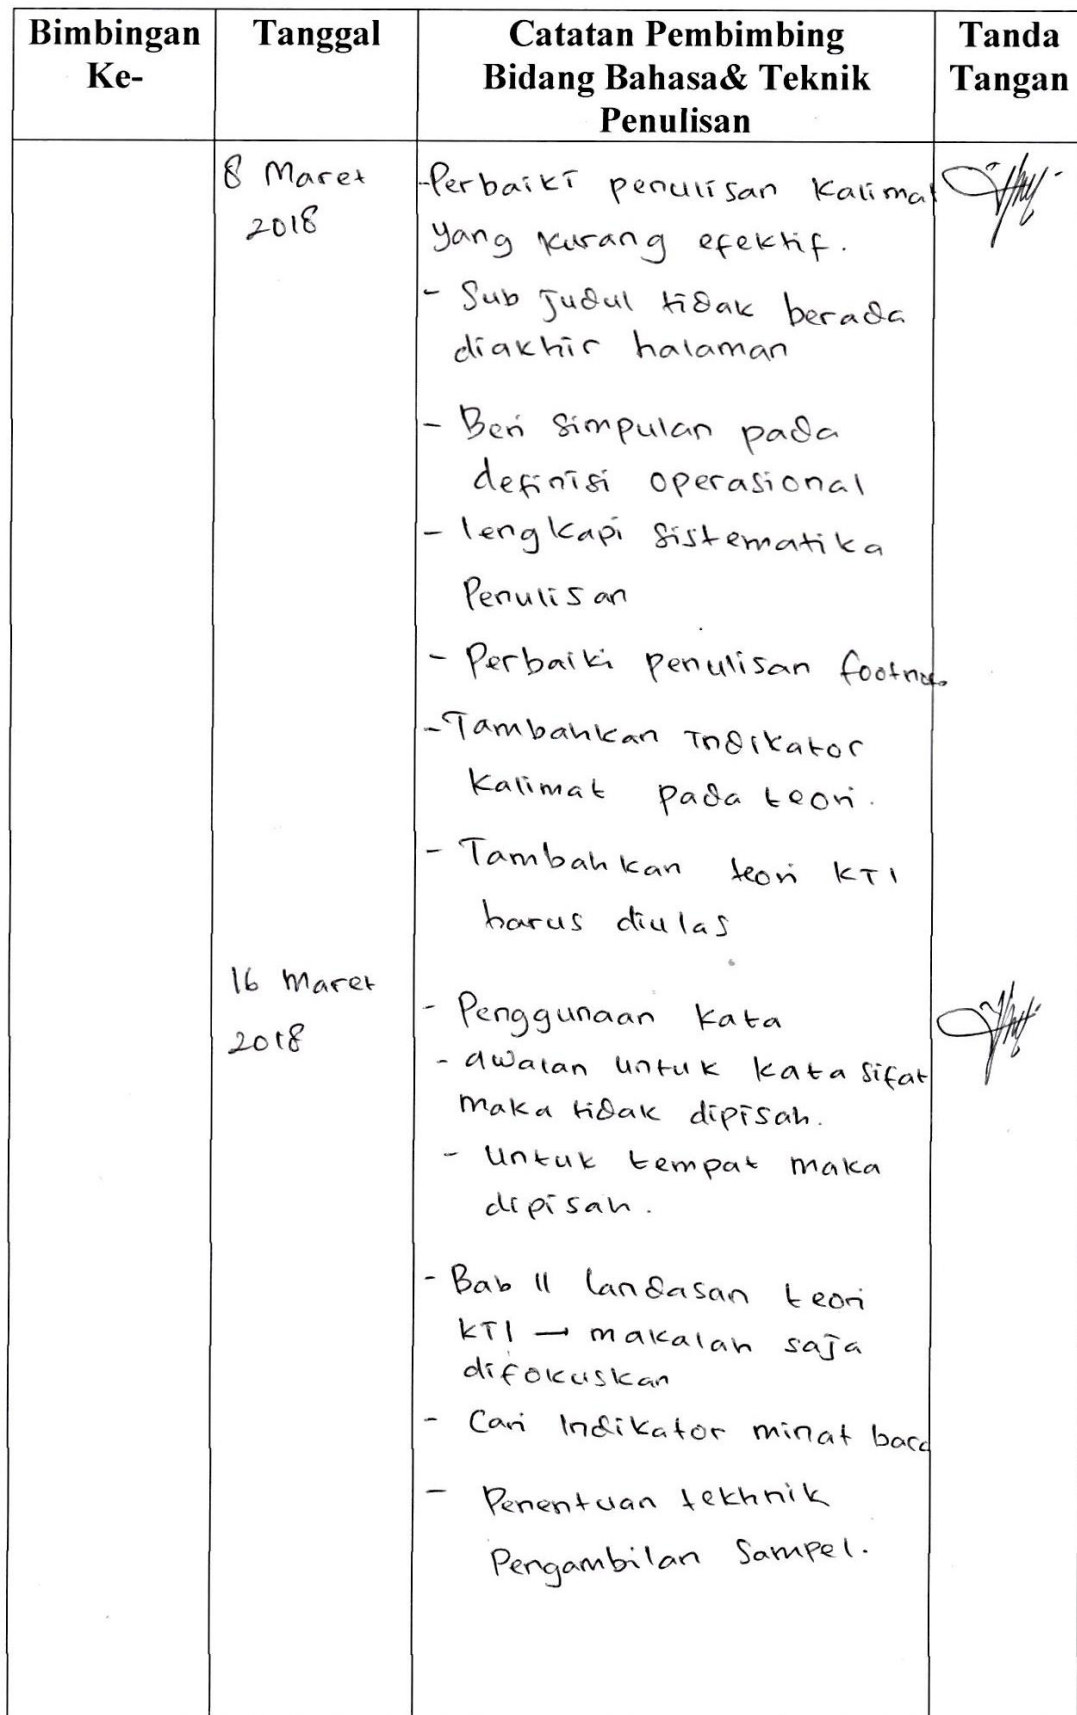 Bimbingan Ke-
Tanggal
Catatan Pembimbing
Bidang Bahasa& Teknik
Penulisan
Tanda
Tangan
8 Maret
2018
-Perbaiki penulisan kalimat
yang kurang efektif.
- Sub judul tidak berada
diakhir halaman
- Beri simpulan pada
definisi operasional
- lengkapi sistematika
Penulisan
- Perbaiki penulisan
-Tambahkan Indikator
kalimat pada teori.
- Tambahkan teori KTI
harus diulas
16 Maret
2018
- Penggunaan kata
- awalan untuk kata sifat
maka tidak dipisah.
- Untuk tempat maka
dipisah.
- Bab II landasan teori
KTI → makalah saja
difokuskan
- Cari Indikator minat baca
- Penentuan tekhnik
Pengambilan Sampel.